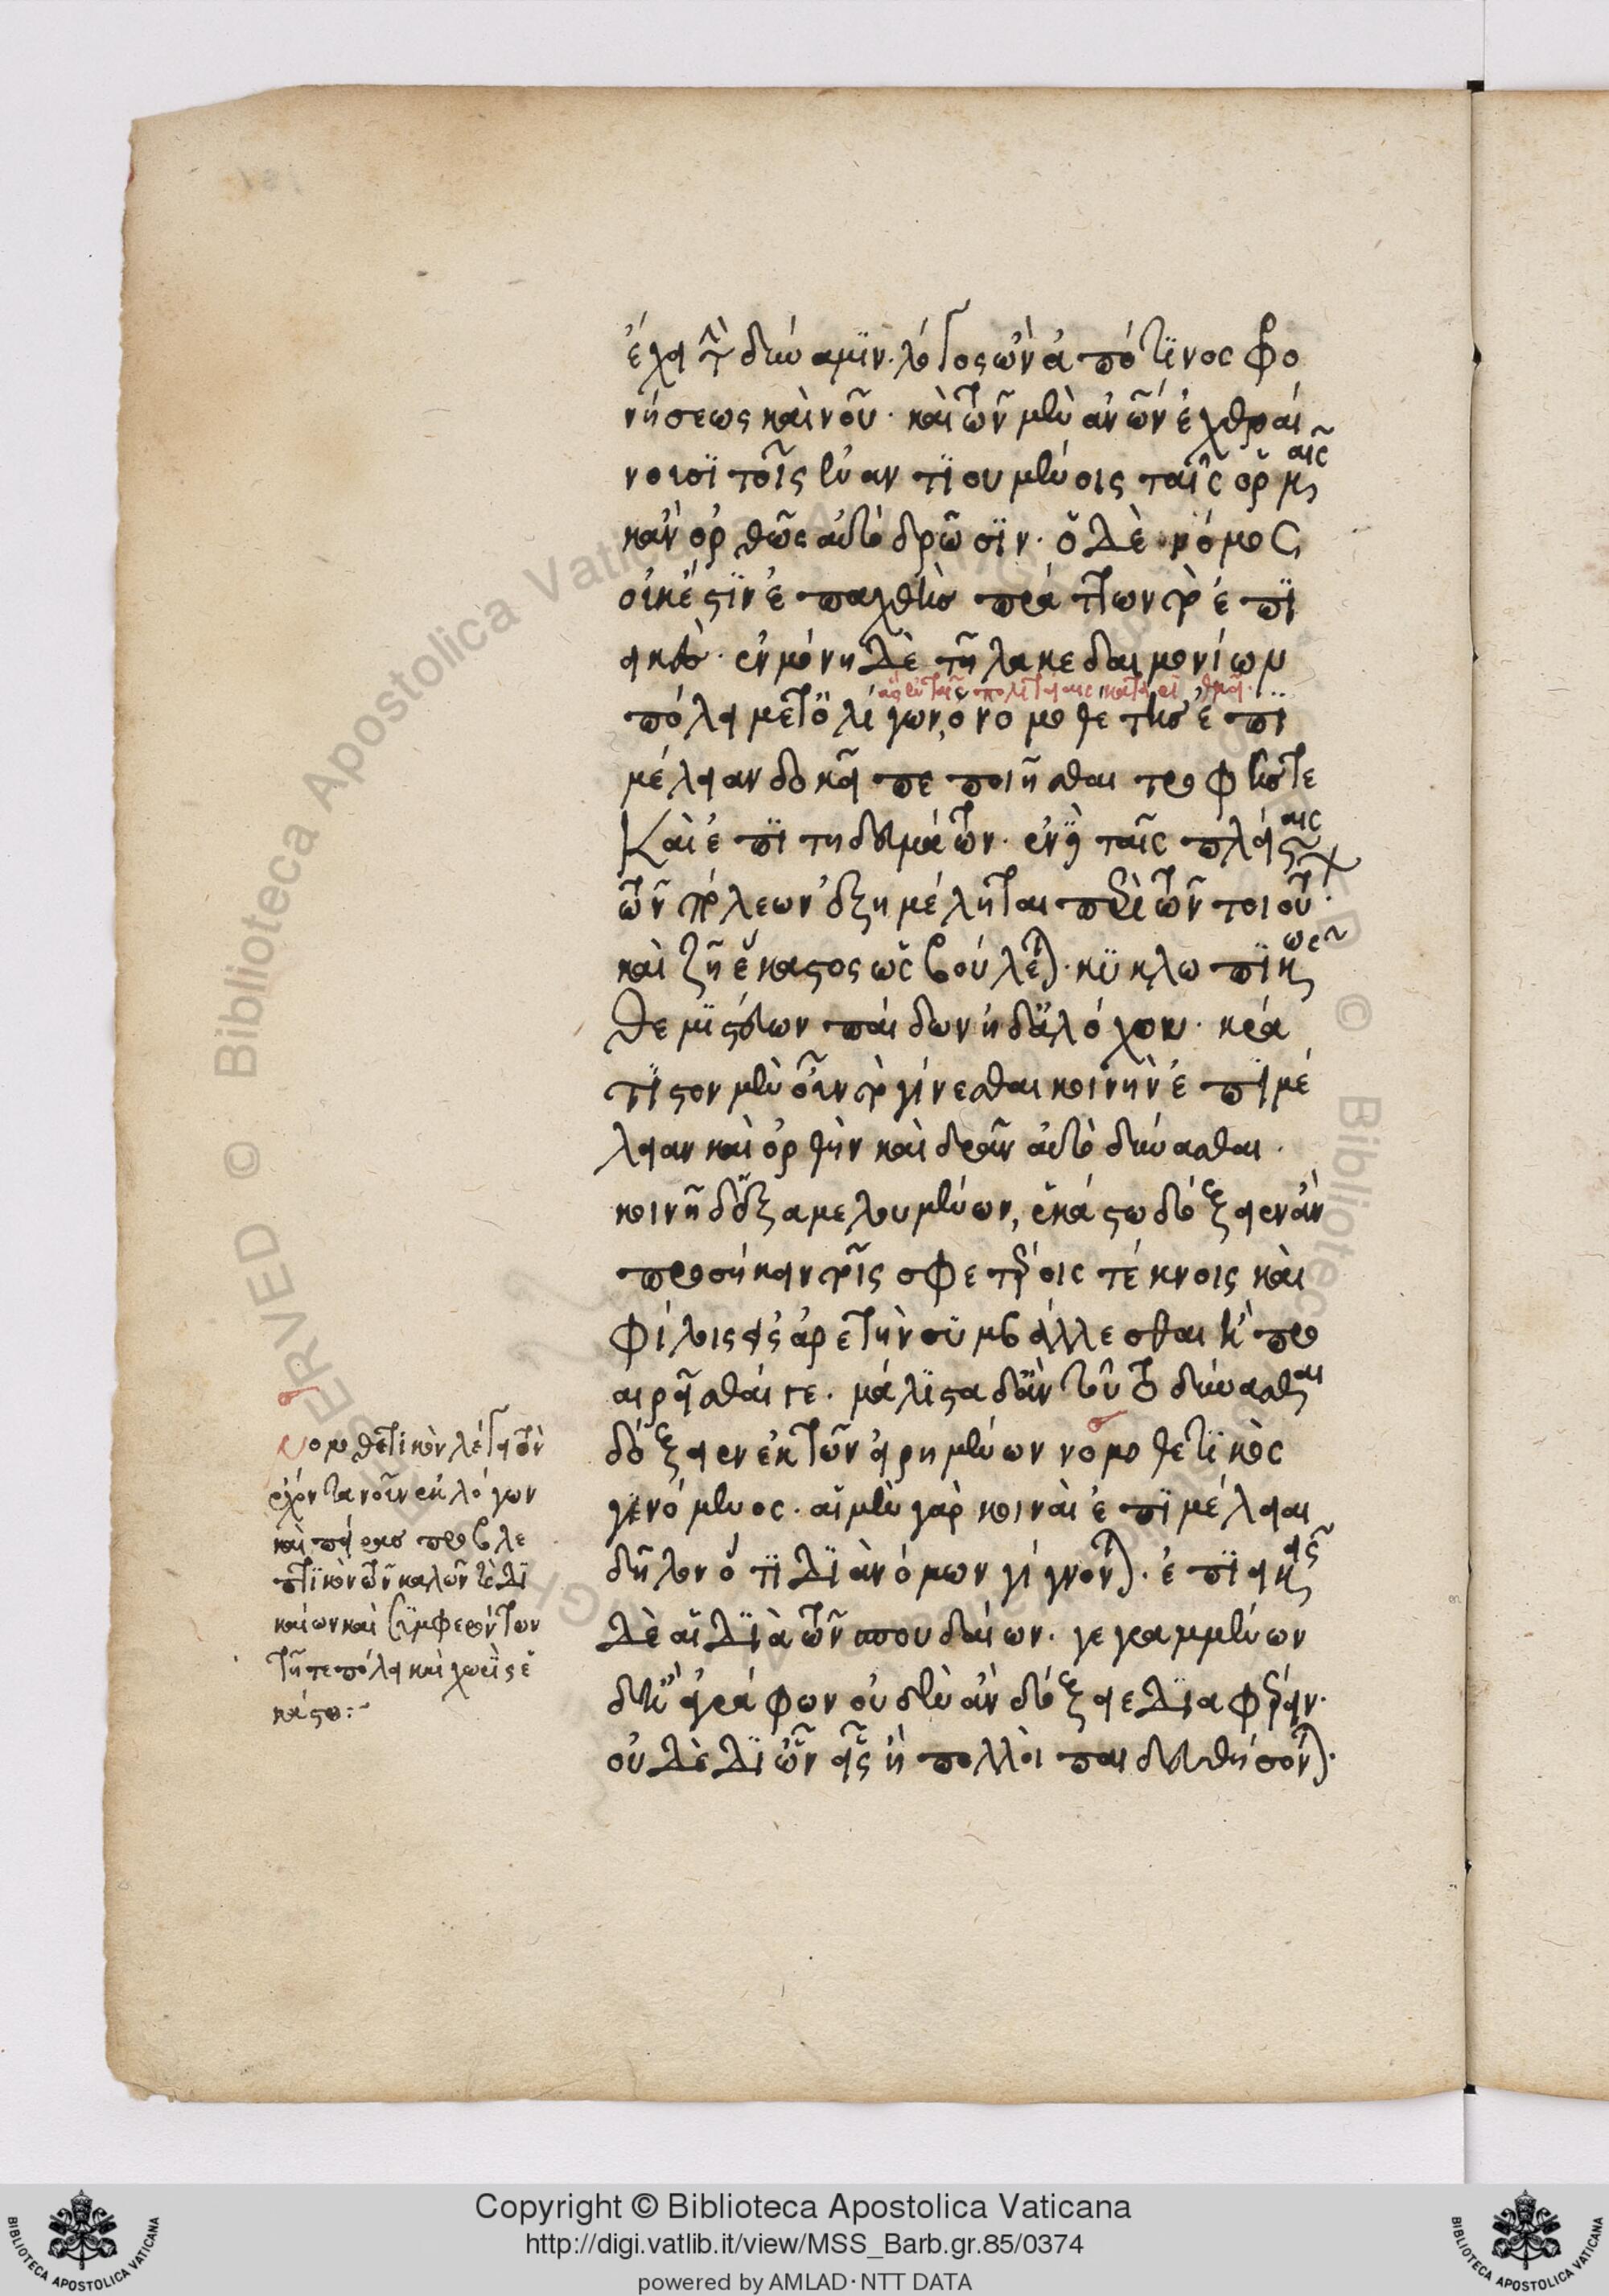 ἔχει τὴν δύναμιν. λόγος ὢν ἀπό τινος φρο
νήσεως καὶ νοῦ. καὶ τῶν μὲν ἀνῶν ἐχθραί
νουσι τοῖς ἐναντιουμένοις ταῖς ὁρμαῖς
κἂν ὀρθῶς αὐτὸ δρῶσιν. ὁ δὲ νόμος
οὐκ ἔστιν ἐπαχθὴς πράττων τὸ ἐπι
εικὲς. ἐν μόνη δὲ τῆ λακεδαιμονίων
πόλει μετ' ὀλίγων, ὁ νομοθέτης ἐπι
μέλειαν δοκεῖ πεποιῆσθαι τροφῆς τε
Καὶ ἐπιτηδευμάτων. ἐν δὲ ταῖς πλείσταις
τῶν πόλεων ἐξημέληται περὶ τῶν τοιούτων.
καὶ ζῆ ἕκαστος ὡς βούλεται. κυκλωπικῶς
θεμιστεύων παίδων ἠδ' ἀλόχου. κρά
τιστον μὲν οὖν τὸ γίνεσθαι κοινὴν ἐπιμέ
λειαν καὶ ὀρθὴν καὶ δρᾶν αὐτὸ δύνασθαι.
κοινῆ δ' ἐξαμελουμένων, ἑκάστω δόξειεν ἂν
προσήκειν τοῖς σφετέροις τέκνοις καὶ
φίλοις εἰς ἀρετὴν συμβάλλεσθαι ἢ προ
αιρεῖσθαί γε. μάλιστα δ' ἂν τοῦτο δύνασθαι
δόξειεν ἐκ τῶν εἰρημένων νομοθετικὸς
γενόμενος. αἱ μὲν γὰρ κοιναὶ ἐπιμέλειαι
δῆλον ὅτι διὰ νόμων γίγνονται. ἐπιεικεῖς
δὲ αἱ διὰ τῶν σπουδαίων. γεγραμμένων
δὲ ἢ ἀγράφων οὐδὲν ἂν δόξειε διαφέρειν.
οὐδὲ δι' ὧν εἷς ἢ πολλοὶ παιδευθήσονται.
νομοθετικὸν λέγει τὸν
ἔχοντα νοῦν ἐκ λόγων
καὶ πείρας προβλε
πτικὸν τῶν καλῶν καὶ δι
καίων καὶ συμφερόντων
τῆ τε πόλει καὶ χωρὶς ἑ
κάστω:~
Copyright © Biblioteca Apostolica Vaticana
http://digi.vatlib.it/view/MSS_Barb.gr.85/0374
powered by AMLAD · NTT DATA